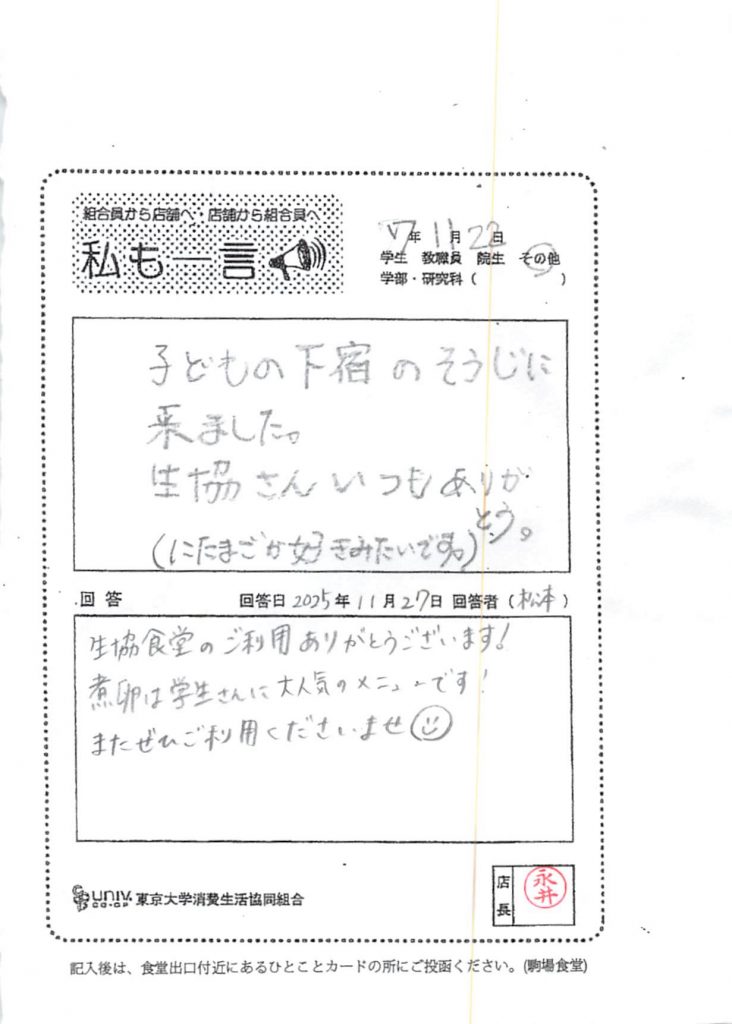 組合員から店舗へ・店舗から組合員へ
私も一言
7年11月22日
学生 教職員 院生 その他
学部・研究科( )
子どもの下宿のそうじに
来ました。
生協さんいつもありが
とう。
(にたまごが好きみたいですね。)
回答 回答日2025年11月27日 回答者(松本)
生協食堂のご利用ありがとうございます!
煮卵は学生さんに大人気のメニューです!
またぜひご利用くださいませ
UNIV. CO-OP 東京大学消費生活協同組合
店長 永井
記入後は、食堂出口付近にあるひとことカードの所にご投函ください。(駒場食堂)